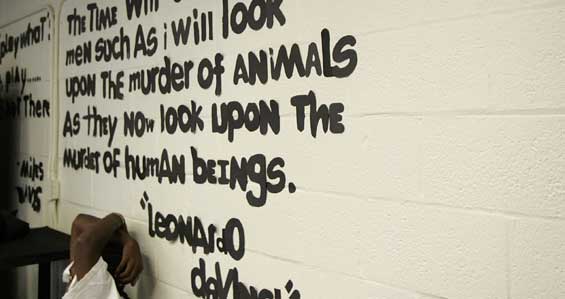 play what's
play.....
not There
"Miles
the Time will
men such As i will look
upon The murder of Animals
As they now look upon The
murder of human Beings.
"Leonardo
daVinci"